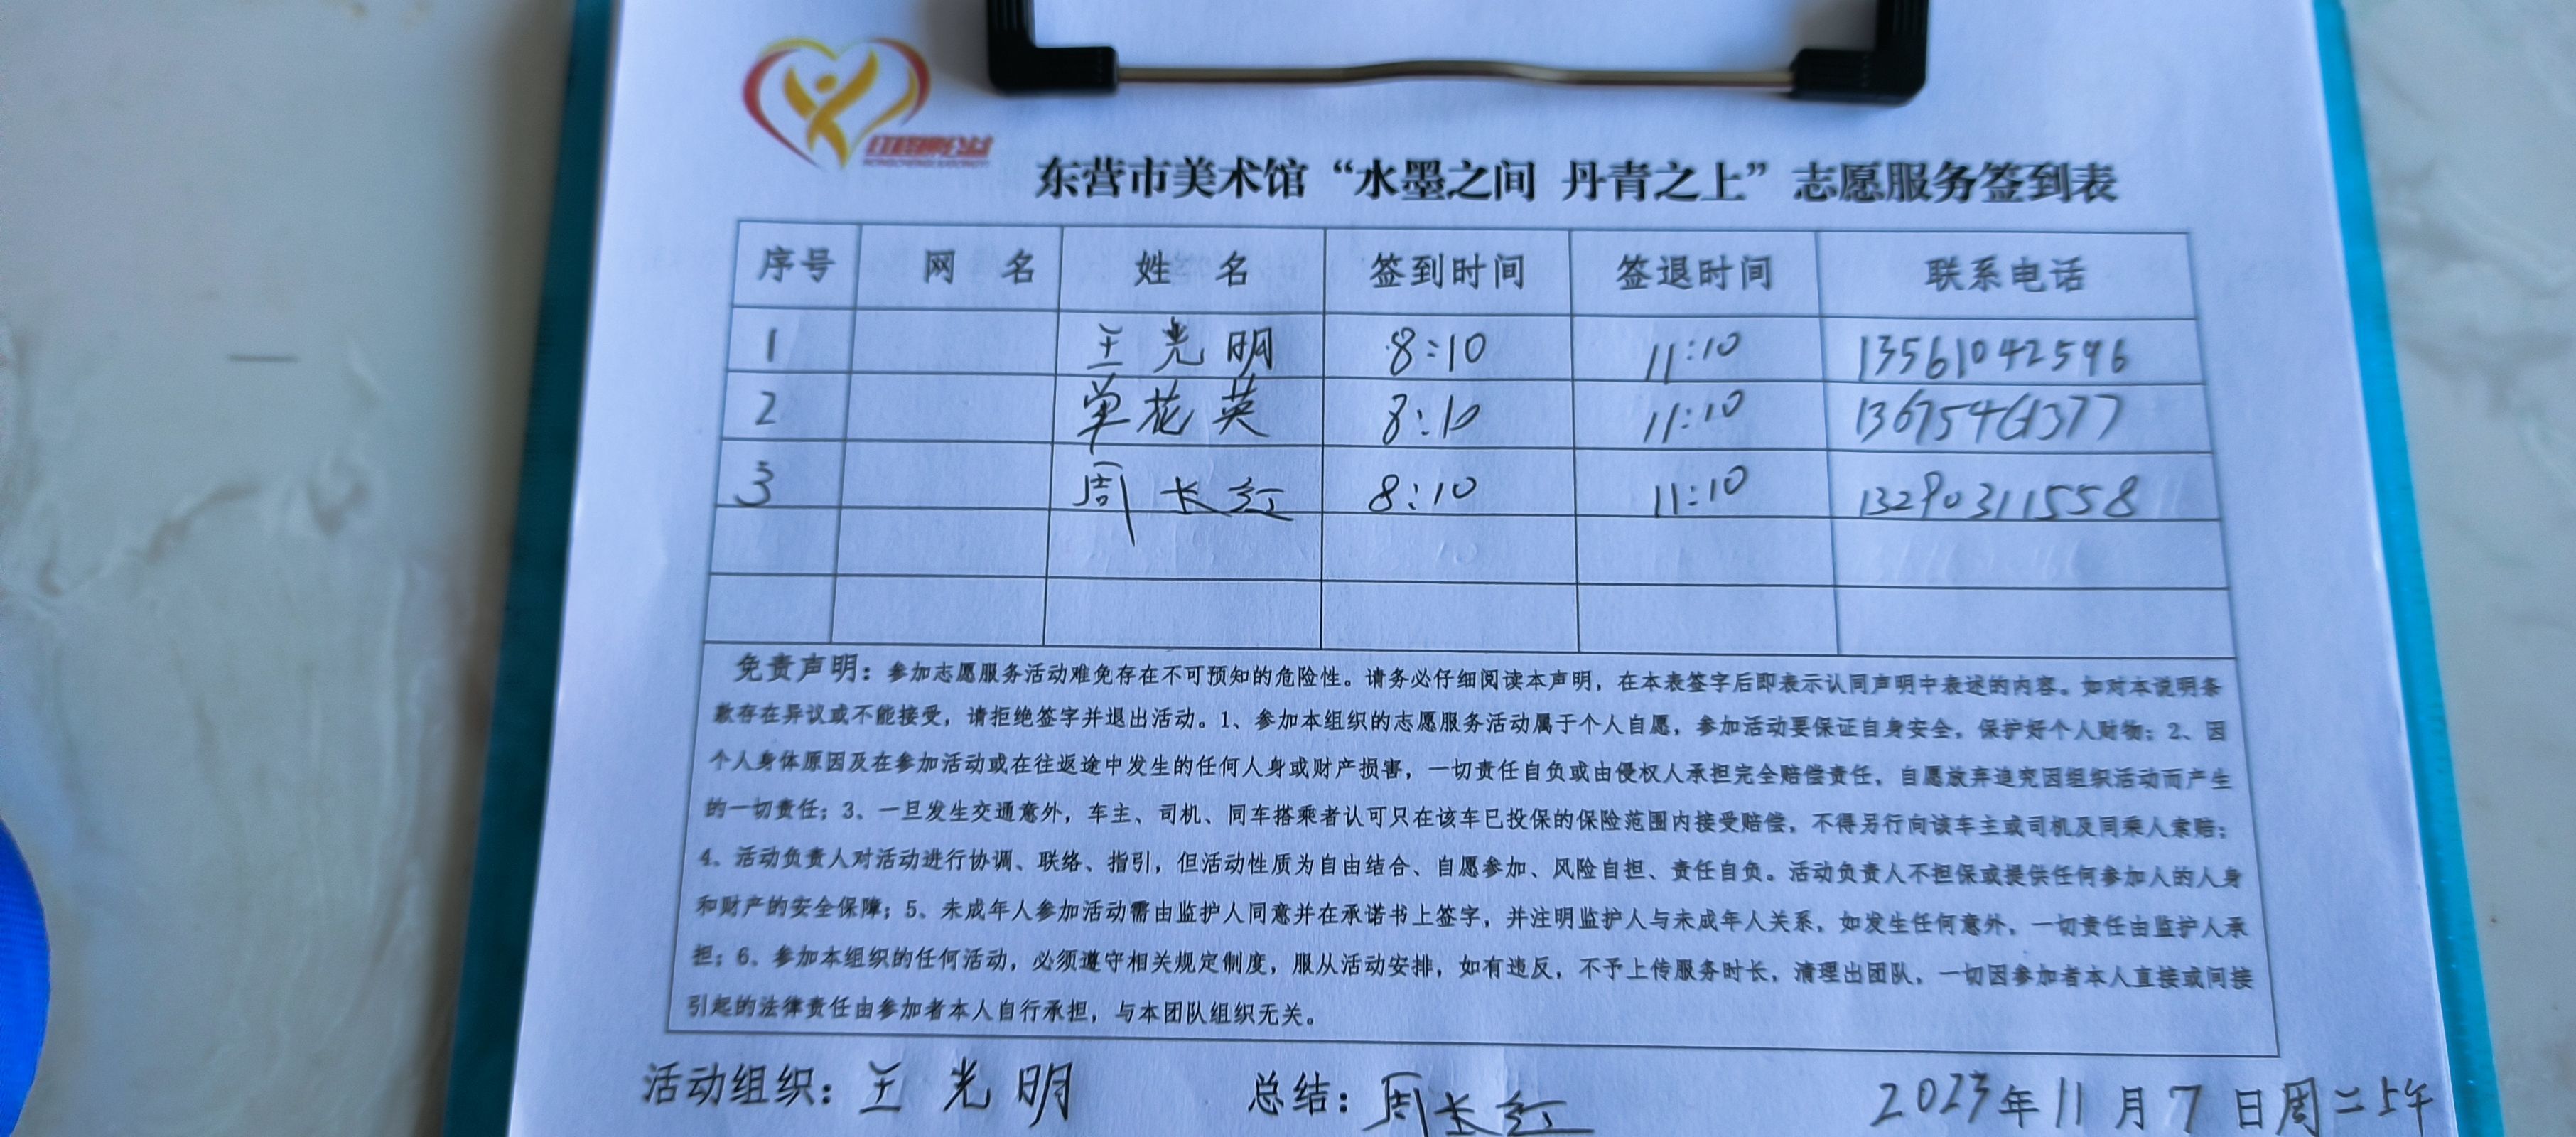 东营市美术馆“水墨之间 丹青之上”志愿服务签到表
序号 网 名 姓 名 签到时间 签退时间 联系电话
1 王光明 8:10 11:10 13561042596
2 单花英 8:10 11:10 13675461377
3 周长红 8:10 11:10 13290311558
免责声明：参加志愿服务活动难免存在不可预知的危险性。请务必仔细阅读本声明，在本表签字后即表示认同声明中表述的内容。如对本说明条
款存在异议或不能接受，请拒绝签字并退出活动。1、参加本组织的志愿服务活动属于个人自愿，参加活动要保证自身安全，保护好个人财物；2、因
个人身体原因及在参加活动或在往返途中发生的任何人身或财产损害，一切责任自负或由侵权人承担完全赔偿责任，自愿放弃追究因组织活动而产生
的一切责任；3、一旦发生交通意外，车主、司机、同车搭乘者认可只在该车已投保的保险范围内接受赔偿，不得另行向该车主或司机及同乘人索赔；
4、活动负责人对活动进行协调、联络、指引，但活动性质为自由结合、自愿参加、风险自担、责任自负。活动负责人不担保或提供任何参加人的人身
和财产的安全保障；5、未成年人参加活动需由监护人同意并在承诺书上签字，并注明监护人与未成年人关系，如发生任何意外，一切责任由监护人承
担；6、参加本组织的任何活动，必须遵守相关规定制度，服从活动安排，如有违反，不予上传服务时长，清理出团队，一切因参加者本人直接或间接
引起的法律责任由参加者本人自行承担，与本团队组织无关。
活动组织：王光明 总结：周长红 2023年11月7日周二上午